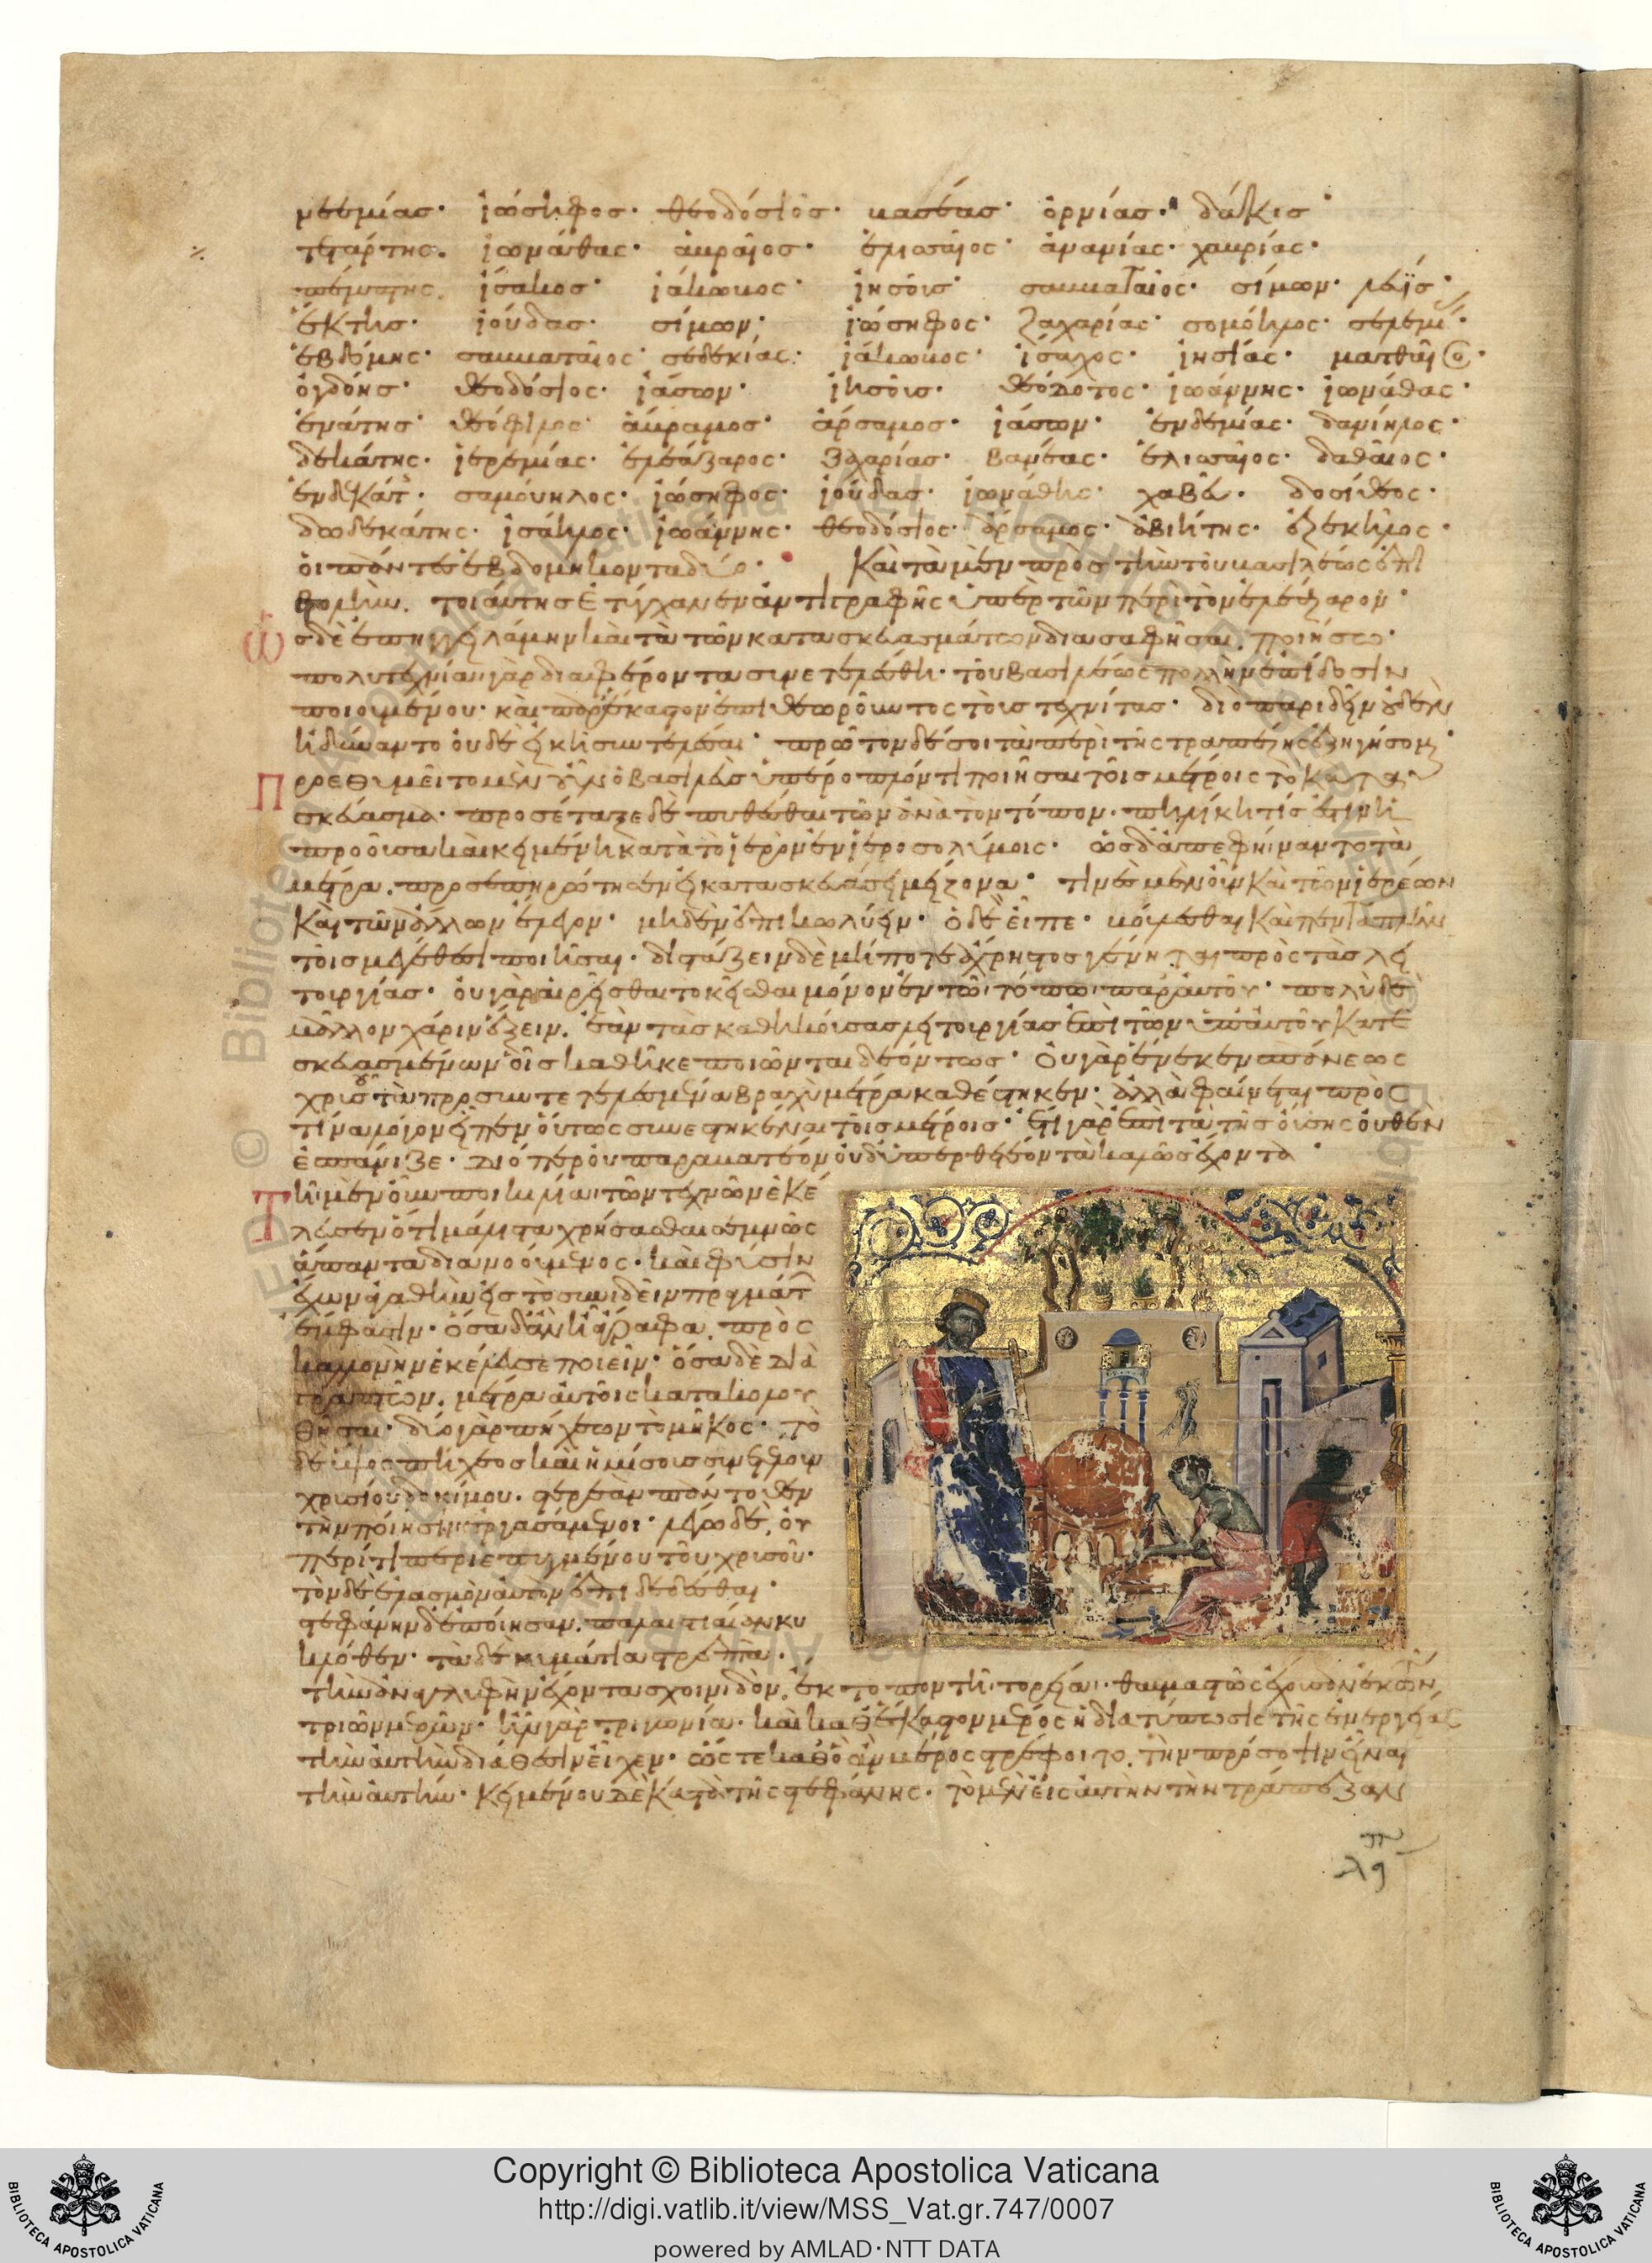 νεεμίας· ἰώσηφος· θεοδόσιος· βασέας· ὀρνίας· δάκις·
τετάρτης· ἰωνάθας· ἀβραῖος· ἐλισσαῖος· ἀνανίας· χαβρίας·
πέμπτης· ἴσακος· ἰάκωβος· ἰησοῦς· σαββαταῖος· σίμων· λευίς·
ἕκτης· ἰούδας· σίμων· ἰώσηφος· ζαχαρίας· σομόηλος· σελεμί
ἑβδόμης· σαββαταῖος· σεδεκίας· ἰάκωβος· ἴσαχος· ἰησίας· ματθαῖος·
ὀγδόης· θεοδόσιος· ἰάσων· ἰησοῦς· θεόδοτος· ἰωάννης· ἰωνάθας·
ἐνάτης· θεόφιλος· ἄβραμος· ἄρσαμος· ἰάσων· ἐνδεμίας· δανίηλος·
δεκάτης· ἱερεμίας· ἐλεάζαρος· ζαχαρίας· βανέας· ἐλισσαῖος· δαθαῖος·
ἑνδεκάτ· σαμούηλος· ἰώσηφος· ἰούδας· ἰωνάθης· χαβεῦ· δοσίθεος·
δωδεκάτης· ἰσάηλος· ἰωάννης· θεοδόσιος· ἄρσαμος· ἀβιήτης· ἐζεκῆλος·
οἱ πάντες ἑβδομήκοντα δύο· Καὶ τὰ μὲν πρὸς τὴν τοῦ βασιλέως ἐπι
στολὴν· τοιαύτης ἐτύγχανεν ἀντιγραφῆς ὑπὲρ τῶν περὶ τὸν ἐλεάζαρον·
ὡς δὲ ἐπηγγειλάμην καὶ τὰ τῶν κατασκευασμάτων διασαφῆσαι ποιήσω·
πολυτεχνίαν γὰρ διαφέροντα συνετελέσθη· τοῦ βασιλέως πολλὴν ἐπίδοσιν
ποιουμένου· καὶ παρ' ἕκαστον ἐπιθεωροῦντος τοὺς τεχνίτας· διὸ παριδεῖν οὐδὲν
ἠδύναντο οὐδὲ εἰκῆ συντελέσαι· πρῶτον δέ σοι τὰ περὶ τῆς τραπέζης ἐξηγήσομαι·
Προεθυμεῖτο μὲν οὖν ὁ βασιλεὺς ὑπέροπλόν τι ποιῆσαι τοῖς μέτροις τὸ κατα
σκεύασμα· προσέταξε δὲ πυθέσθαι τῶν ἀνὰ τὸν τόπον· πηλίκη τίς ἐστιν ἡ
προοῦσα καὶ κειμένη κατὰ τὸ ἱερὸν ἐν ἱεροσολύμοις· ὡς δ' ἀπεφήναντο τὰ
μέτρα· προσεπηρώτησεν εἰ κατασκευάσει μείζονα· τινὲς μὲν οὖν καὶ τῶν ἱερέων
καὶ τῶν ἄλλων ἔλεγον· μηδὲν ἐπικωλύειν· ὁ δὲ εἶπε· βούλεσθαι καὶ πενταπλῆν
τοῖς μεγέθεσι ποιῆσαι· διστάζειν δὲ μήποτε ἄχρηστος γένηται πρὸς τὰς λει
τουργίας· οὐ γὰρ αἱρεῖσθαι τὸ κεῖσθαι μόνον ἐν τῷ τόπῳ παρ' αὐτοῦ· πολὺ δὲ
μᾶλλον χάριν ἕξειν· ἐὰν τὰς καθηκούσας λειτουργίας ἐπὶ τῶν ὑπ' αὐτοῦ κατε
σκευασμένων οἷς καθῆκε ποιῶνται δεόντως· οὐ γὰρ ἕνεκεν σπάνεως
χρυσοῦ τὰ προσυντετελεσμένα βραχύμετρα καθέστηκεν· ἀλλὰ φαίνεται πρός
τινα λόγον εἶπεν οὕτως συνεστηκέναι τοῖς μέτροις· εἰ γὰρ ἐπὶ τὰ τῆς οὔσης οὐθὲν
ἐσπάνιζε· διόπερ οὐ παραβατέον οὐδὲ ὑπερθετέον τὰ καλῶς ἔχοντα·
Τῇ μὲν οὖν ποικιλίᾳ τῶν τεχνῶν ἐκέ
λευσεν ὅτι μάλιστα χρήσασθαι σεμνῶς
ἅπαντα διανοούμενος· καὶ φύσιν
ἔχων ἀγαθὴν εἰς τὸ συνιδεῖν πραγμάτ
ἔμφασιν· ὅσα δ' ἂν ᾖ ἄγραφα πρὸς
καλλονὴν ἐκέλευσε ποιεῖν· ὅσα δὲ διὰ
γραπτῶν· μέτρα αὐτοῖς κατακολου
θῆσαι· δύο γὰρ πήχεων τὸ μῆκος· τὸ
δὲ ὕψος πήχεος καὶ ἡμίσους συνετέλουν
χρυσίου δοκίμου· στερεὰν πάντοθεν
τὴν ποίησιν ἐργασάμενοι· λέγω δὲ οὐ
περί τι περιεπτυγμένου τοῦ χρυσοῦ·
τὸν δὲ ἐλασμὸν αὐτὸν ἐπιδεδέσθαι·
στεφάνην δὲ ἐποίησαν παλαιστιαίαν κυ
κλόθεν· τὰ δὲ κυμάτια στρεπτὰ·
τὴν ἀναγλυφὴν ἔχοντα σχοινίδων ἔκτυπον τῇ τορείᾳ· θαυμαστῶς ἔχουσαν ἐκ τῶν
τριῶν μερῶν· ἦν γὰρ τριγωνία· καὶ καθ' ἕκαστον μέρος ἡ διατύπωσις τῆς ἐνεργείας
τὴν αὐτὴν διάθεσιν εἶχεν· ὥστε καθ' ὃ ἂν μέρος στρέφοιτο· τὴν πρόσοψιν εἶναι
τὴν αὐτήν· κειμένου δὲ κατὰ τῆς στεφάνης· τὸ μὲν εἰς αὐτὴν τὴν τράπεζαν
Copyright © Biblioteca Apostolica Vaticana
http://digi.vatlib.it/view/MSS_Vat.gr.747/0007
powered by AMLAD·NTT DATA
BIBLIOTECA APOSTOLICA VATICANA
BIBLIOTECA APOSTOLICA VATICANA